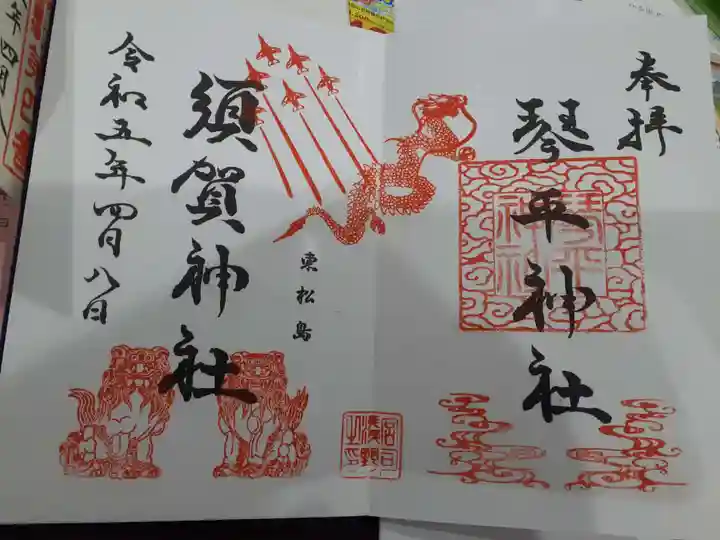 奉拝
琴平神社
琴平
神社
須賀神社
東松島
令和五年四月八日